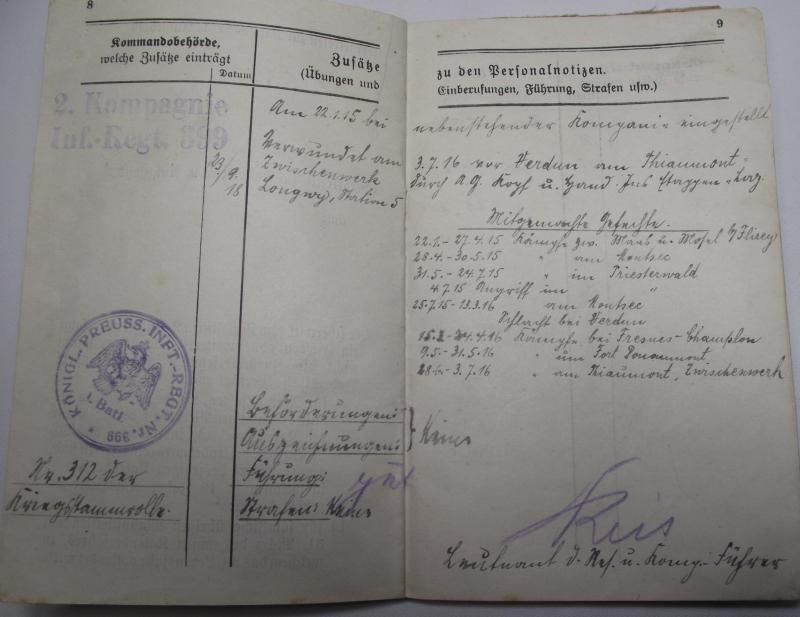 8
Kommandobehörde,
welche Zusätze einträgt
Datum
Zusätze
(Übungen und
2. Kompagnie
Inf.-Regt. 399
23/9.
18
Am 22.1.15 bei
Verwundet am
Zwischenwerk
Longwy, Station 5
KÖNIGL. PREUSS. INFT.-RGT. Nr. 399
I. Batl.
Beförderungen:
Auszeichnungen:
Führung: gut
Strafen: Keine
Nr. 312 der
Kriegsstammrolle.
9
zu den Personalnotizen.
Einberufungen, Führung, Strafen usw.)
nebenstehender Kompanie eingestellt
3.7.16 vor Verdun am Thiaumont
durch A.G. Kopf u. Hand. Ins Etappen-Laz.
Mitgemachte Gefechte.
22.1.- 27.4.15 Kämpfe zw. Maas u. Mosel b/Flirey
28.4.- 30.5.15 " am Montsec
31.5.- 24.7.15 " im Priesterwald
4.7.15 Angriff im "
25.7.15-13.2.16 am Montsec
Schlacht bei Verdun
24.4.16 Kämpfe bei Fresnes-Champlon
9.5.- 31.5.16 " um Fort Douaumont
28.6.- 3.7.16 " am Thiaumont, Zwischenwerk
Keine
Leutnant d. Res. u. Komp.-Führer